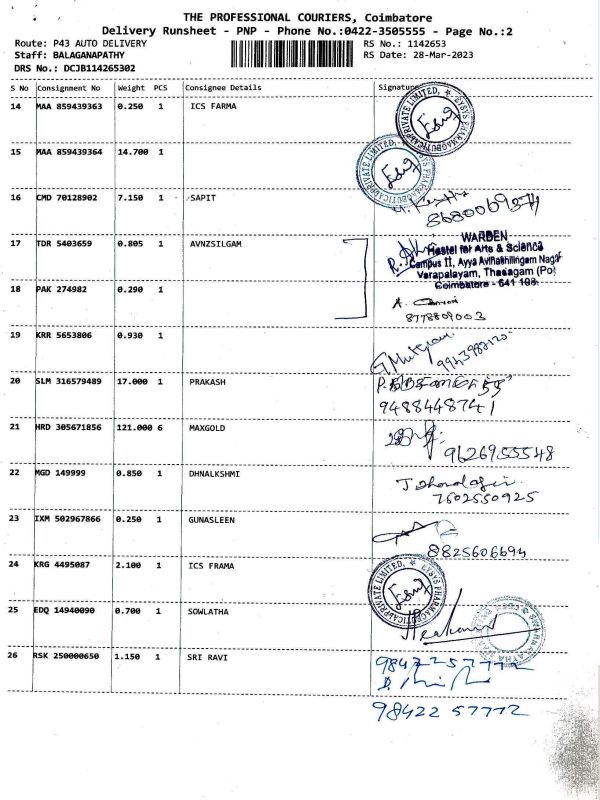 THE PROFESSIONAL COURIERS, Coimbatore
Delivery Runsheet - PNP - Phone No.:0422-3505555 - Page No.:2
Route: P43 AUTO DELIVERY RS No.: 1142653
Staff: BALAGANAPATHY RS Date: 28-Mar-2023
DRS No.: DCJB114265302
S No Consignment No Weight PCS Consignee Details Signature
14 MAA 859439363 0.250 1 ICS FARMA
15 MAA 859439364 14.700 1
16 CMD 70128902 7.150 1 SAPIT
17 TDR 5403659 0.805 1 AVNZSILGAM
WARDEN
Hostel for Arts & Science
Campus II, Ayya Avinashilingam Nagar
Varapalayam, Thadagam (Po)
Coimbatore - 641 108.
18 PAK 274982 0.290 1
8778809003
19 KRR 5653806 0.930 1
20 SLM 316579489 17.000 1 PRAKASH
9488448741
21 HRD 305671856 121.000 6 MAXGOLD
9626955548
22 MGD 149999 0.850 1 DHNALKSHMI
7602550925
23 IXM 502967866 0.250 1 GUNASLEEN
8825606694
24 KRG 4495087 2.100 1 ICS FRAMA
25 EDQ 14940090 0.700 1 SOWLATHA
26 RSK 250000650 1.150 1 SRI RAVI
98422 57772
98422 57772